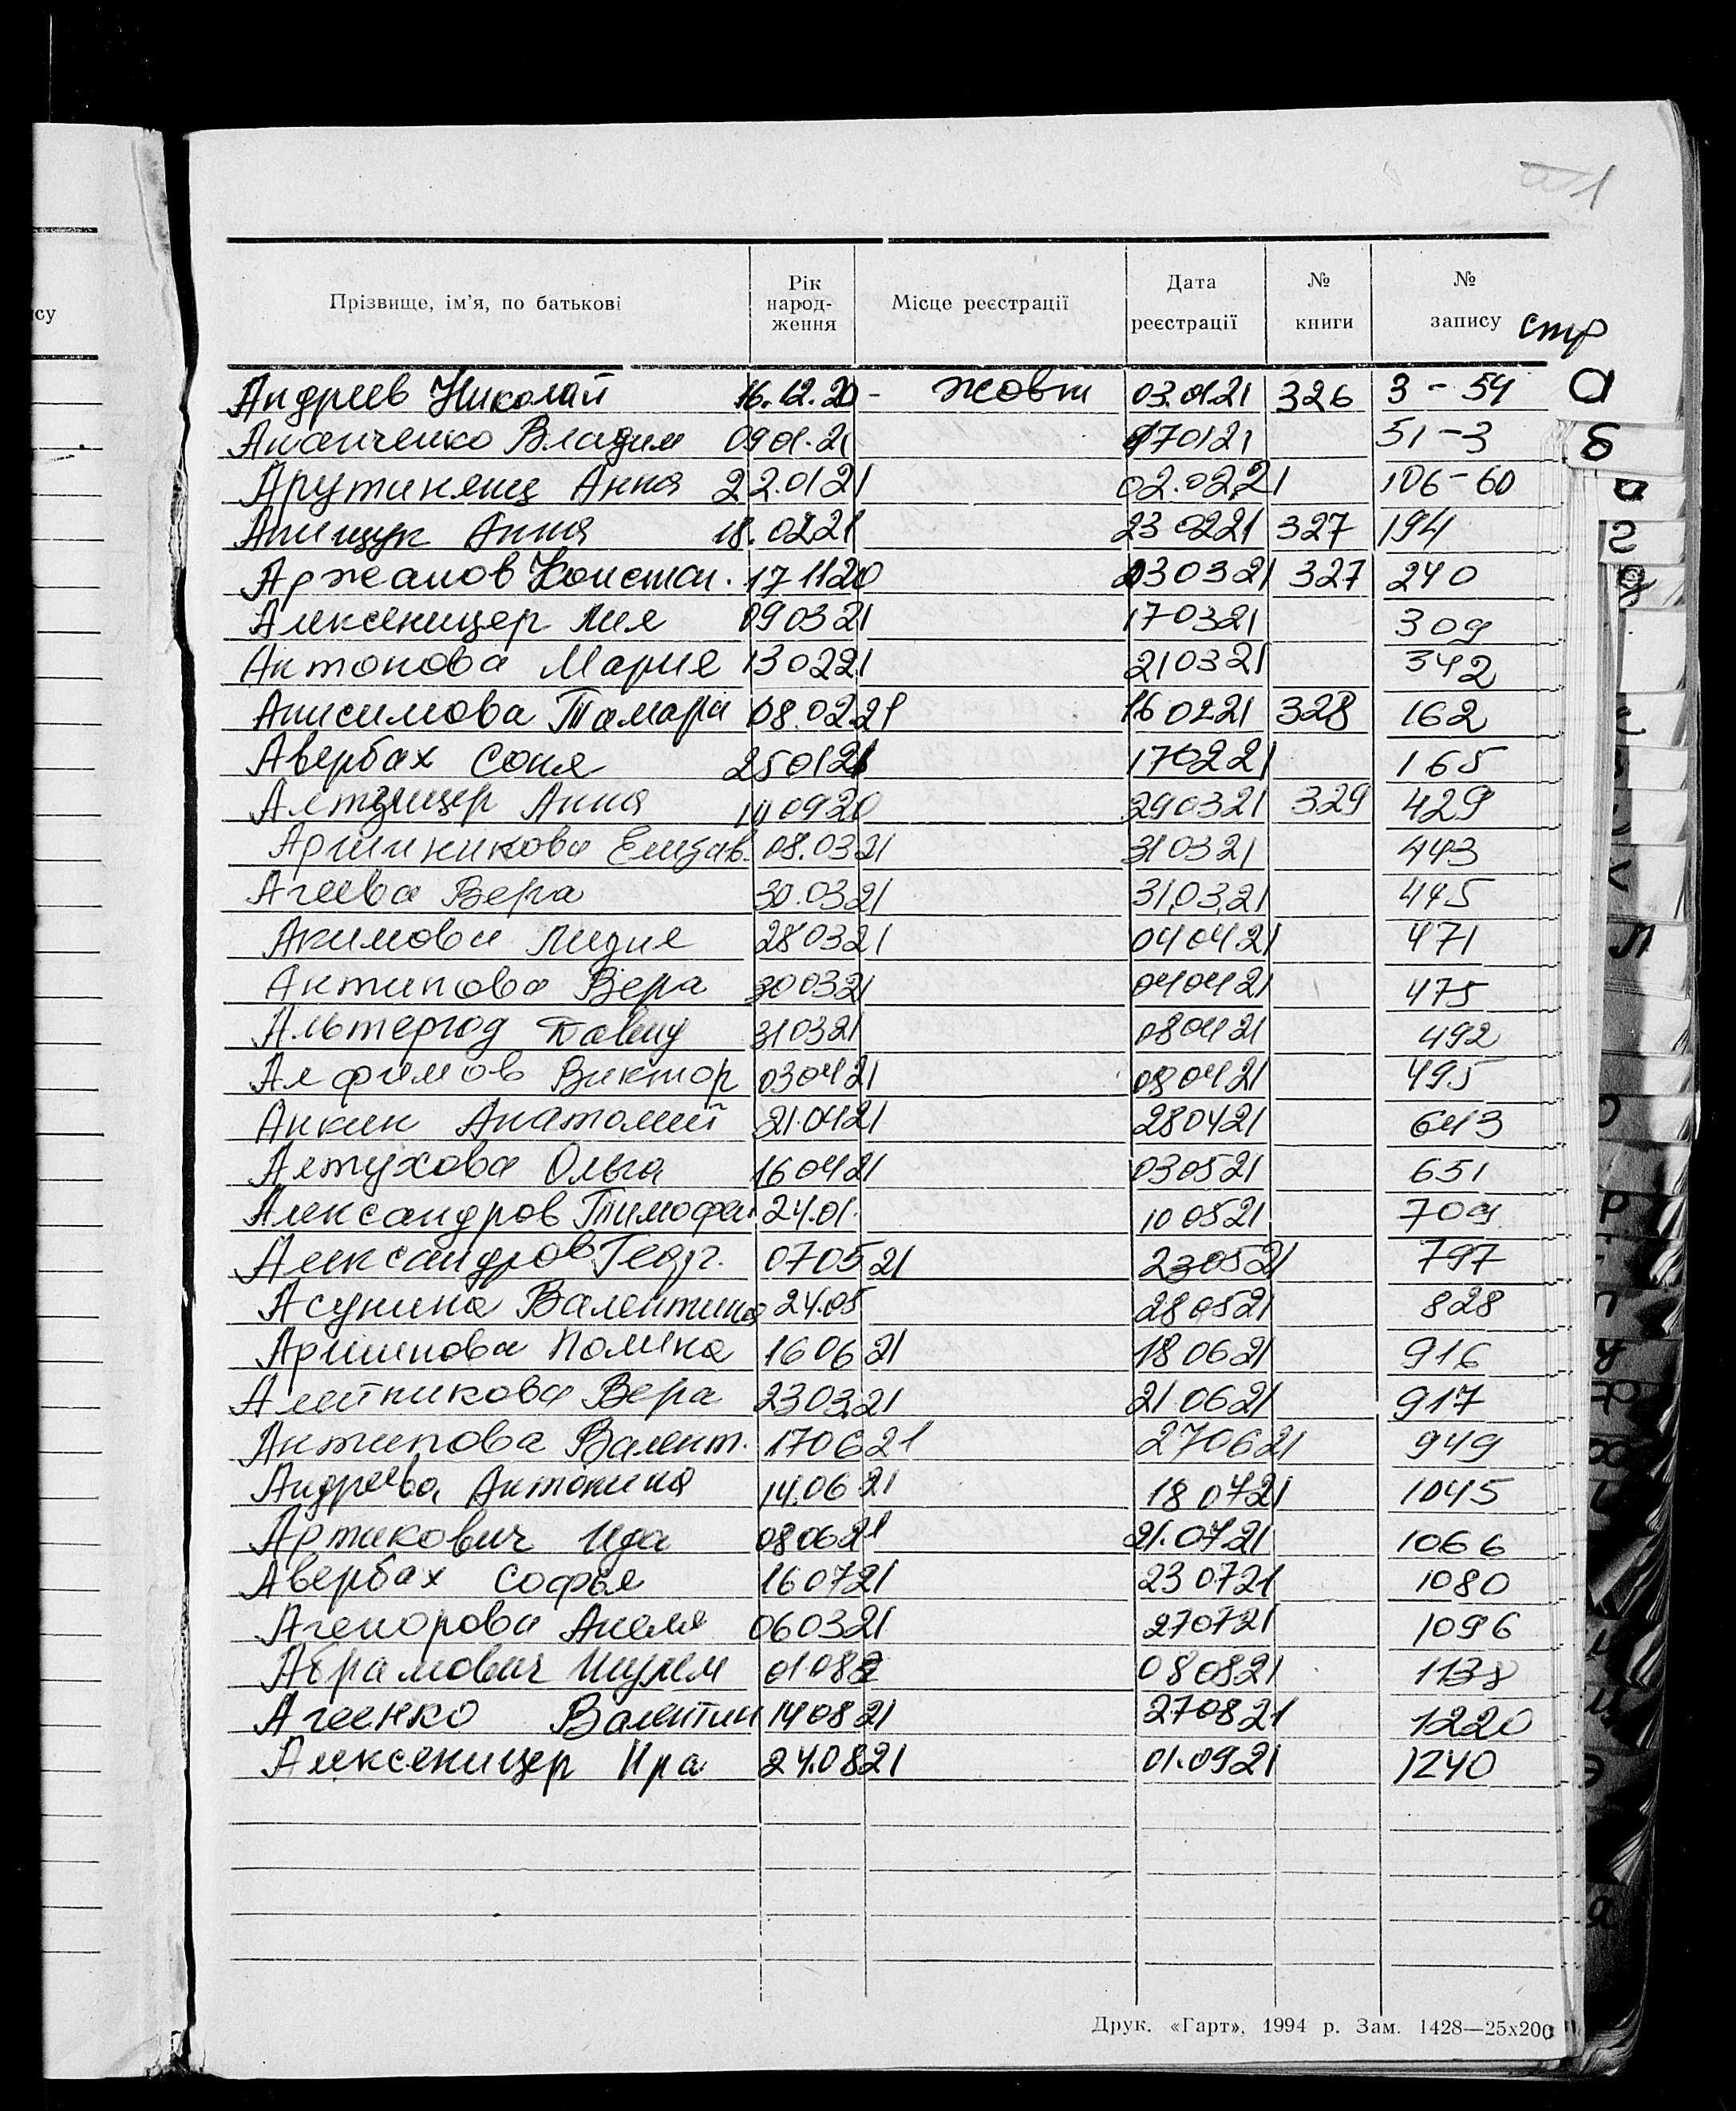 1
су
Прізвище, ім'я, по батькові Рік народ-ження Місце реєстрації Дата реєстрації № книги № запису стр
Андреев Николай 16.12.20 - жовт 03.01.21 326 3 - 54
Ананченко Владим 09 01.21 17 01 21 51 - 3
Арутинянц Анна 22.01 21 02.02.21 106 - 60
Анищук Анна 18.02 21 23 02 21 327 194
Аржанов Констан. 17 11 20 03 03 21 327 240
Алексеницер Лия 09 03 21 17 03 21 309
Антонова Мария 13 02 21 21 03 21 342
Анисимова Тамара 08.02.21 16 02 21 328 162
Авербах Соня 25 01 21 17 02 21 165
Альтзицер Анна 10 09 20 29 03 21 329 429
Аршинникова Елизав. 08.03 21 31 03 21 443
Агеева Вера 30.03 21 31.03.21 445
Акимова Лидия 28 03 21 04 04 21 471
Антипова Вера 30 03 21 04 04 21 475
Альтергод Давид 31 03 21 08 04 21 492
Алфимов Виктор 03 04 21 08 04 21 495
Анкин Анатолий 21.04 21 28 04 21 643
Алтухова Ольга 16 04 21 03 05 21 651
Александров Тимофей 24.01. 10 05 21 709
Александров Георг. 07 05 21 23 05 21 797
Асунина Валентина 24.05 28 05 21 828
Аршинова Полина 16 06 21 18 06 21 916
Алейникова Вера 23 03 21 21 06 21 917
Антипова Валент. 17 06 21 27 06 21 949
Андреева Антонина 14.06 21 18 07 21 1045
Артикович Ида 08 06 21 21.07 21 1066
Авербах Софья 16 07 21 23 07 21 1080
Агенорова Анеля 06 03 21 27 07 21 1096
Абрамович 01 08 2 08 08 21 1138
Агеенко Валентин 14 08 21 27 08 21 1220
Алексеницер Ира 24.08 21 01.09 21 1240
а
б
г
д
л
р
у
ф
э
я
Друк. «Гарт», 1994 р. Зам. 1428—25х200